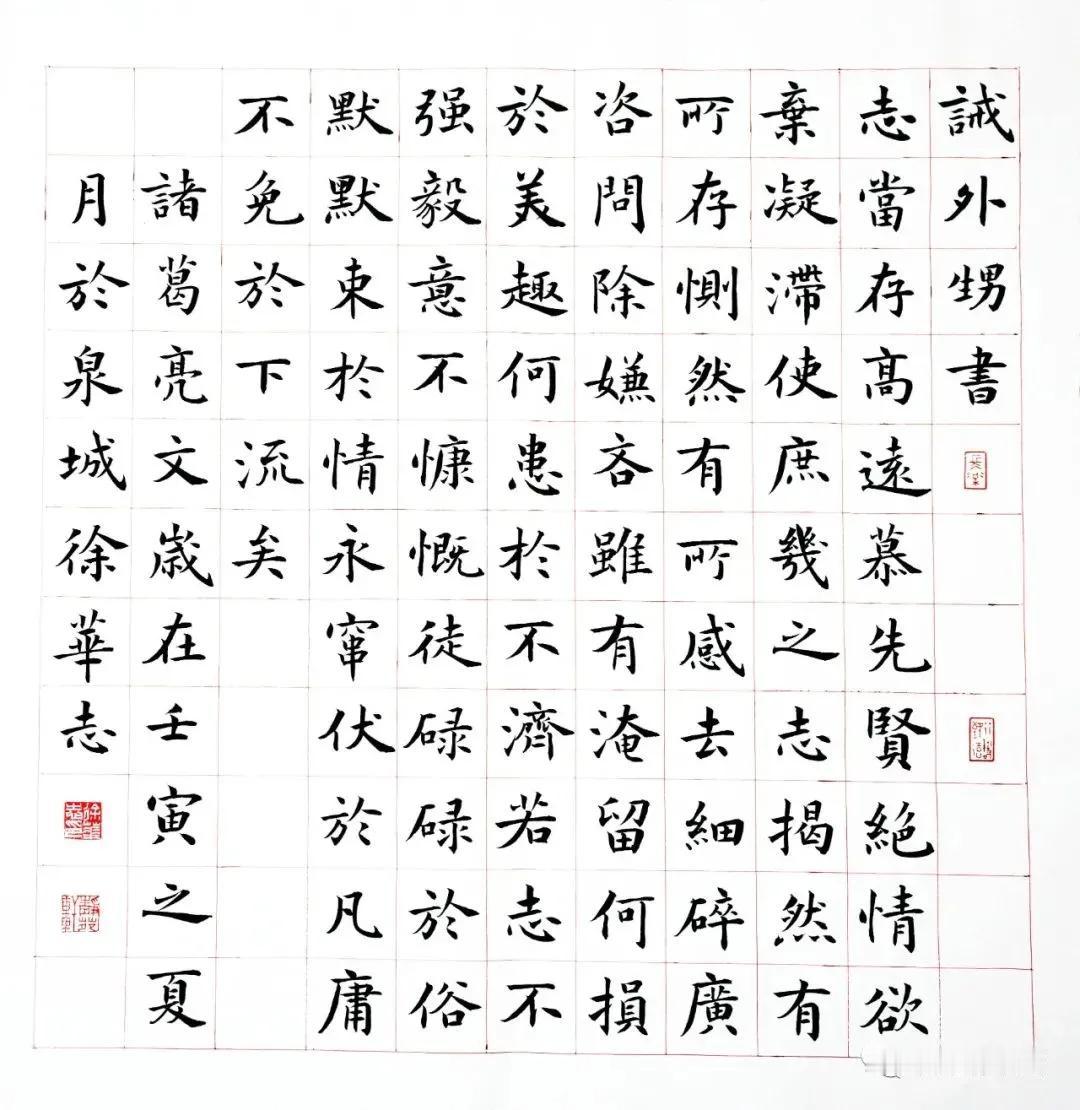 誡外甥書
志當存高遠慕先賢絶情欲
棄凝滯使庶幾之志揭然有
所存惻然有所感去細碎廣
咨問除嫌吝雖有淹留何損
於美趣何患於不濟若志不
强毅意不慷慨徒碌碌於俗
默默束於情永窜伏於凡庸
不免於下流矣
諸葛亮文歲在壬寅之夏
月於泉城徐華志